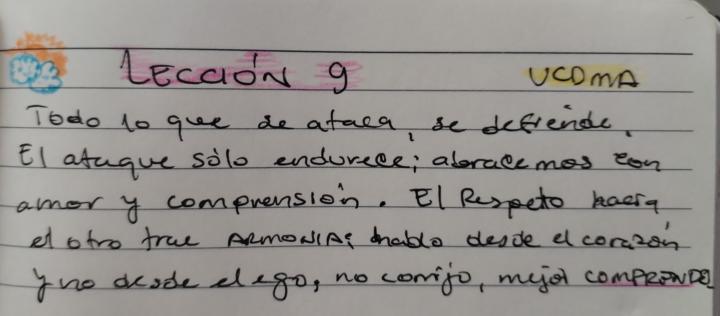 LECCIÓN 9 UCDMA
Todo lo que se ataca, se defiende.
El ataque sólo endurece; abracemos con
amor y comprensión. El Respeto hacia
el otro trae ARMONIA; hablo desde el corazón
y no desde el ego, no corrijo, mejor COMPRENDE